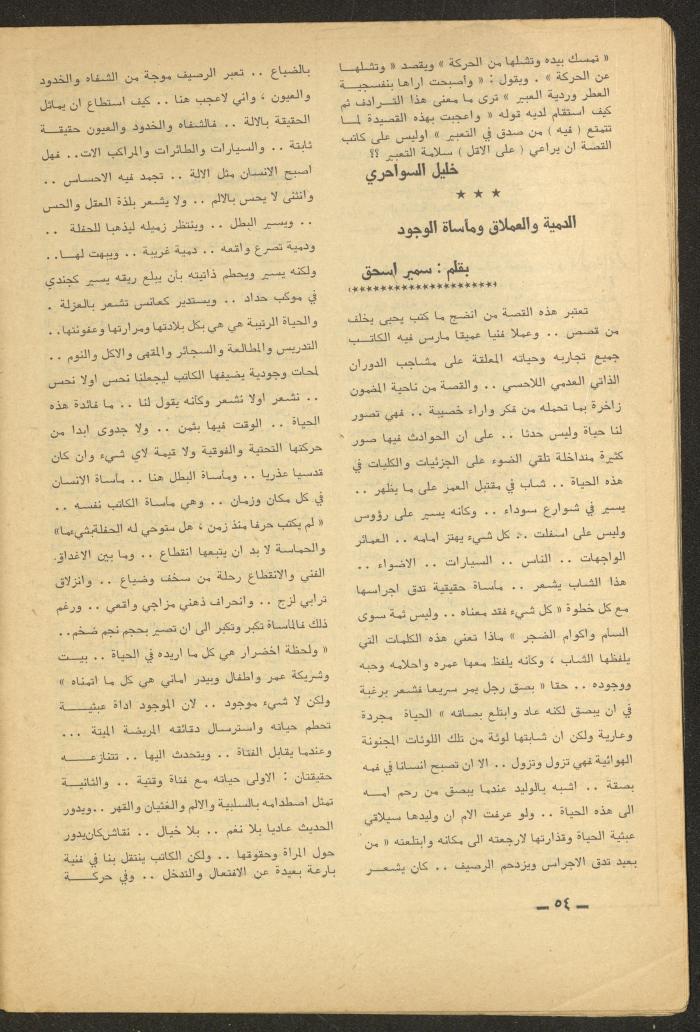 « تمسك بيده وتشلها من الحركة » ويقصد « وتشلهـا
عن الحركة » . ويقول : « وأصبحت اراها بنفسجية
العطر وردية العبير » ترى ما معنى هذا الترادف ثم
كيف استقام لديه قوله « واعجبت بهذه القصيدة لمـا
تتمتع ( فيه ) من صدق في التعبير » اوليس على كاتب
القصة ان يراعي ( على الاقل ) سلامة التعبير ؟؟
خليل السواحري
★ ★ ★
الدمية والعملاق ومأساة الوجود
بقلم : سمير اسحق
تعتبر هذه القصة من انضج ما كتب يحيى يخلف
من قصص .. وعملا فنيا عميقا مارس فيه الكاتـب
جميع تجاربه وحياته المعلقة على مشاجب الدوران
الذاتي العدمي اللاحسي .. والقصة من ناحية المضمون
زاخرة بما تحمله من فكر واراء خصيبة .. فهي تصور
لنا حياة وليس حدثا .. على ان الحوادث فيها صور
كثيرة متداخلة تلقي الضوء على الجزئيات والكليات في
هذه الحياة .. شاب في مقتبل العمر على ما يظهر ..
يسير في شوارع سوداء .. وكأنه يسير على رؤوس
وليس على اسفلت .. كل شيء يهتز امامه .. العمائر
الواجهات .. الناس .. السيارات .. الاضواء ..
هذا الشاب يشعر .. مأساة حقيقية تدق اجراسها
مع كل خطوة « كل شيء فقد معناه .. وليس ثمة سوى
السأم واكوام الضجر » ماذا تعني هذه الكلمات التي
يلفظها الشاب ، وكأنه يلفظ معها عمره واحلامه وحبه
ووجوده .. حقا « بصق رجل يمر سريعا فشعر برغبة
في ان يبصق لكنه عاد وابتلع بصاقه » الحياة مجردة
وعارية ولكن ان شابتها لوثة من تلك اللوثات المجنونة
الهوائية فهي تزول وتزول .. الا ان تصبح انسانا في فمه
بصقة .. اشبه بالوليد عندما يبصق من رحم امـه
الى هذه الحياة .. ولو عرفت الام ان وليدها سيلاقي
عبثية الحياة وقذارتها لارجعته الى مكانه وابتلعته « من
بعيد تدق الاجراس ويزدحم الرصيف .. كان يشعـر
بالضياع .. تعبر الرصيف موجة من الشفاه والخدود
والعيون ، واني لاعجب هنا .. كيف استطاع ان يماثل
الحقيقة بالالة .. فالشفاه والخدود والعيون حقيقـة
ثابتة .. والسيارات والطائرات والمراكب الات.. فهل
اصبح الانسان مثل الالة .. تجمد فيه الاحساس ..
وانثنى لا يحس بالالم .. ولا يشعر بلذة العقل والحس
.. ويسير البطل .. وينتظر زميله ليذهبا للحفلة ..
ودمية تصرع واقعه .. دمية غريبة .. ويبهت لهـا..
ولكنه يسير ويحطم ذاتيته بأن يبلع ريقه يسير كجندي
في موكب حداد .. ويستدير كعانس تشعر بالعزلة .
والحياة الرتيبة هي هي بكل بلادتها ومرارتها وعفونتها..
التدريس والمطالعة والسجائر والمقهى والاكل والنوم ..
لمحات وجودية يضيفها الكاتب ليجعلنا نحس اولا نحس
.. نشعر اولا نشعر وكأنه يقول لنا .. ما فائدة هذه
الحياة .. الوقت فيها بثمن .. ولا جدوى ابدا من
حركتها التحتية والفوقية ولا قيمة لاي شيء وان كان
قدسيا عذريا .. ومأساة البطل هنا .. مأساة الانسان
في كل مكان وزمان .. وهي مأساة الكاتب نفسه ..
« لم يكتب حرفا منذ زمن ، هل ستوحي له الحفلة بشيء ما»
والحماسة لا بد ان يتبعها انقطاع .. وما بين الاغداق
الفني والانقطاع رحلة من سخف وضياع .. وانزلاق
ترابي لزج .. وانحراف ذهني مزاجي واقعي .. ورغم
ذلك فالمأساة تكبر وتكبر الى ان تصير بحجم نجم ضخم..
« ولحظة اخضرار هي كل ما اريده في الحياة .. بيـت
وشريكة عمر واطفال وبيدر اماني هي كل ما اتمناه »
ولكن لا شيء موجود .. لان الموجود اداة عبثيـة
تحطم حياته واسترسال دقائقه المريضة الميتة ...
وعندما يقابل الفتاة .. ويتحدث اليها .. تتنازعـه
حقيقتان : الاولى حياته مع فتاة وقتية .. والثانيـة
تمثل اصطدامه بالسلبية والالم والغثيان والقهر ..ويدور
الحديث عاديا بلا نغم .. بلا خيال .. نقاش كان يدور
حول المراة وحقوقها .. ولكن الكاتب ينتقل بنا في فنية
بارعة بعيدة عن الافتعال والتدخل .. وفي حركـة
ـ ٥٤ ـ